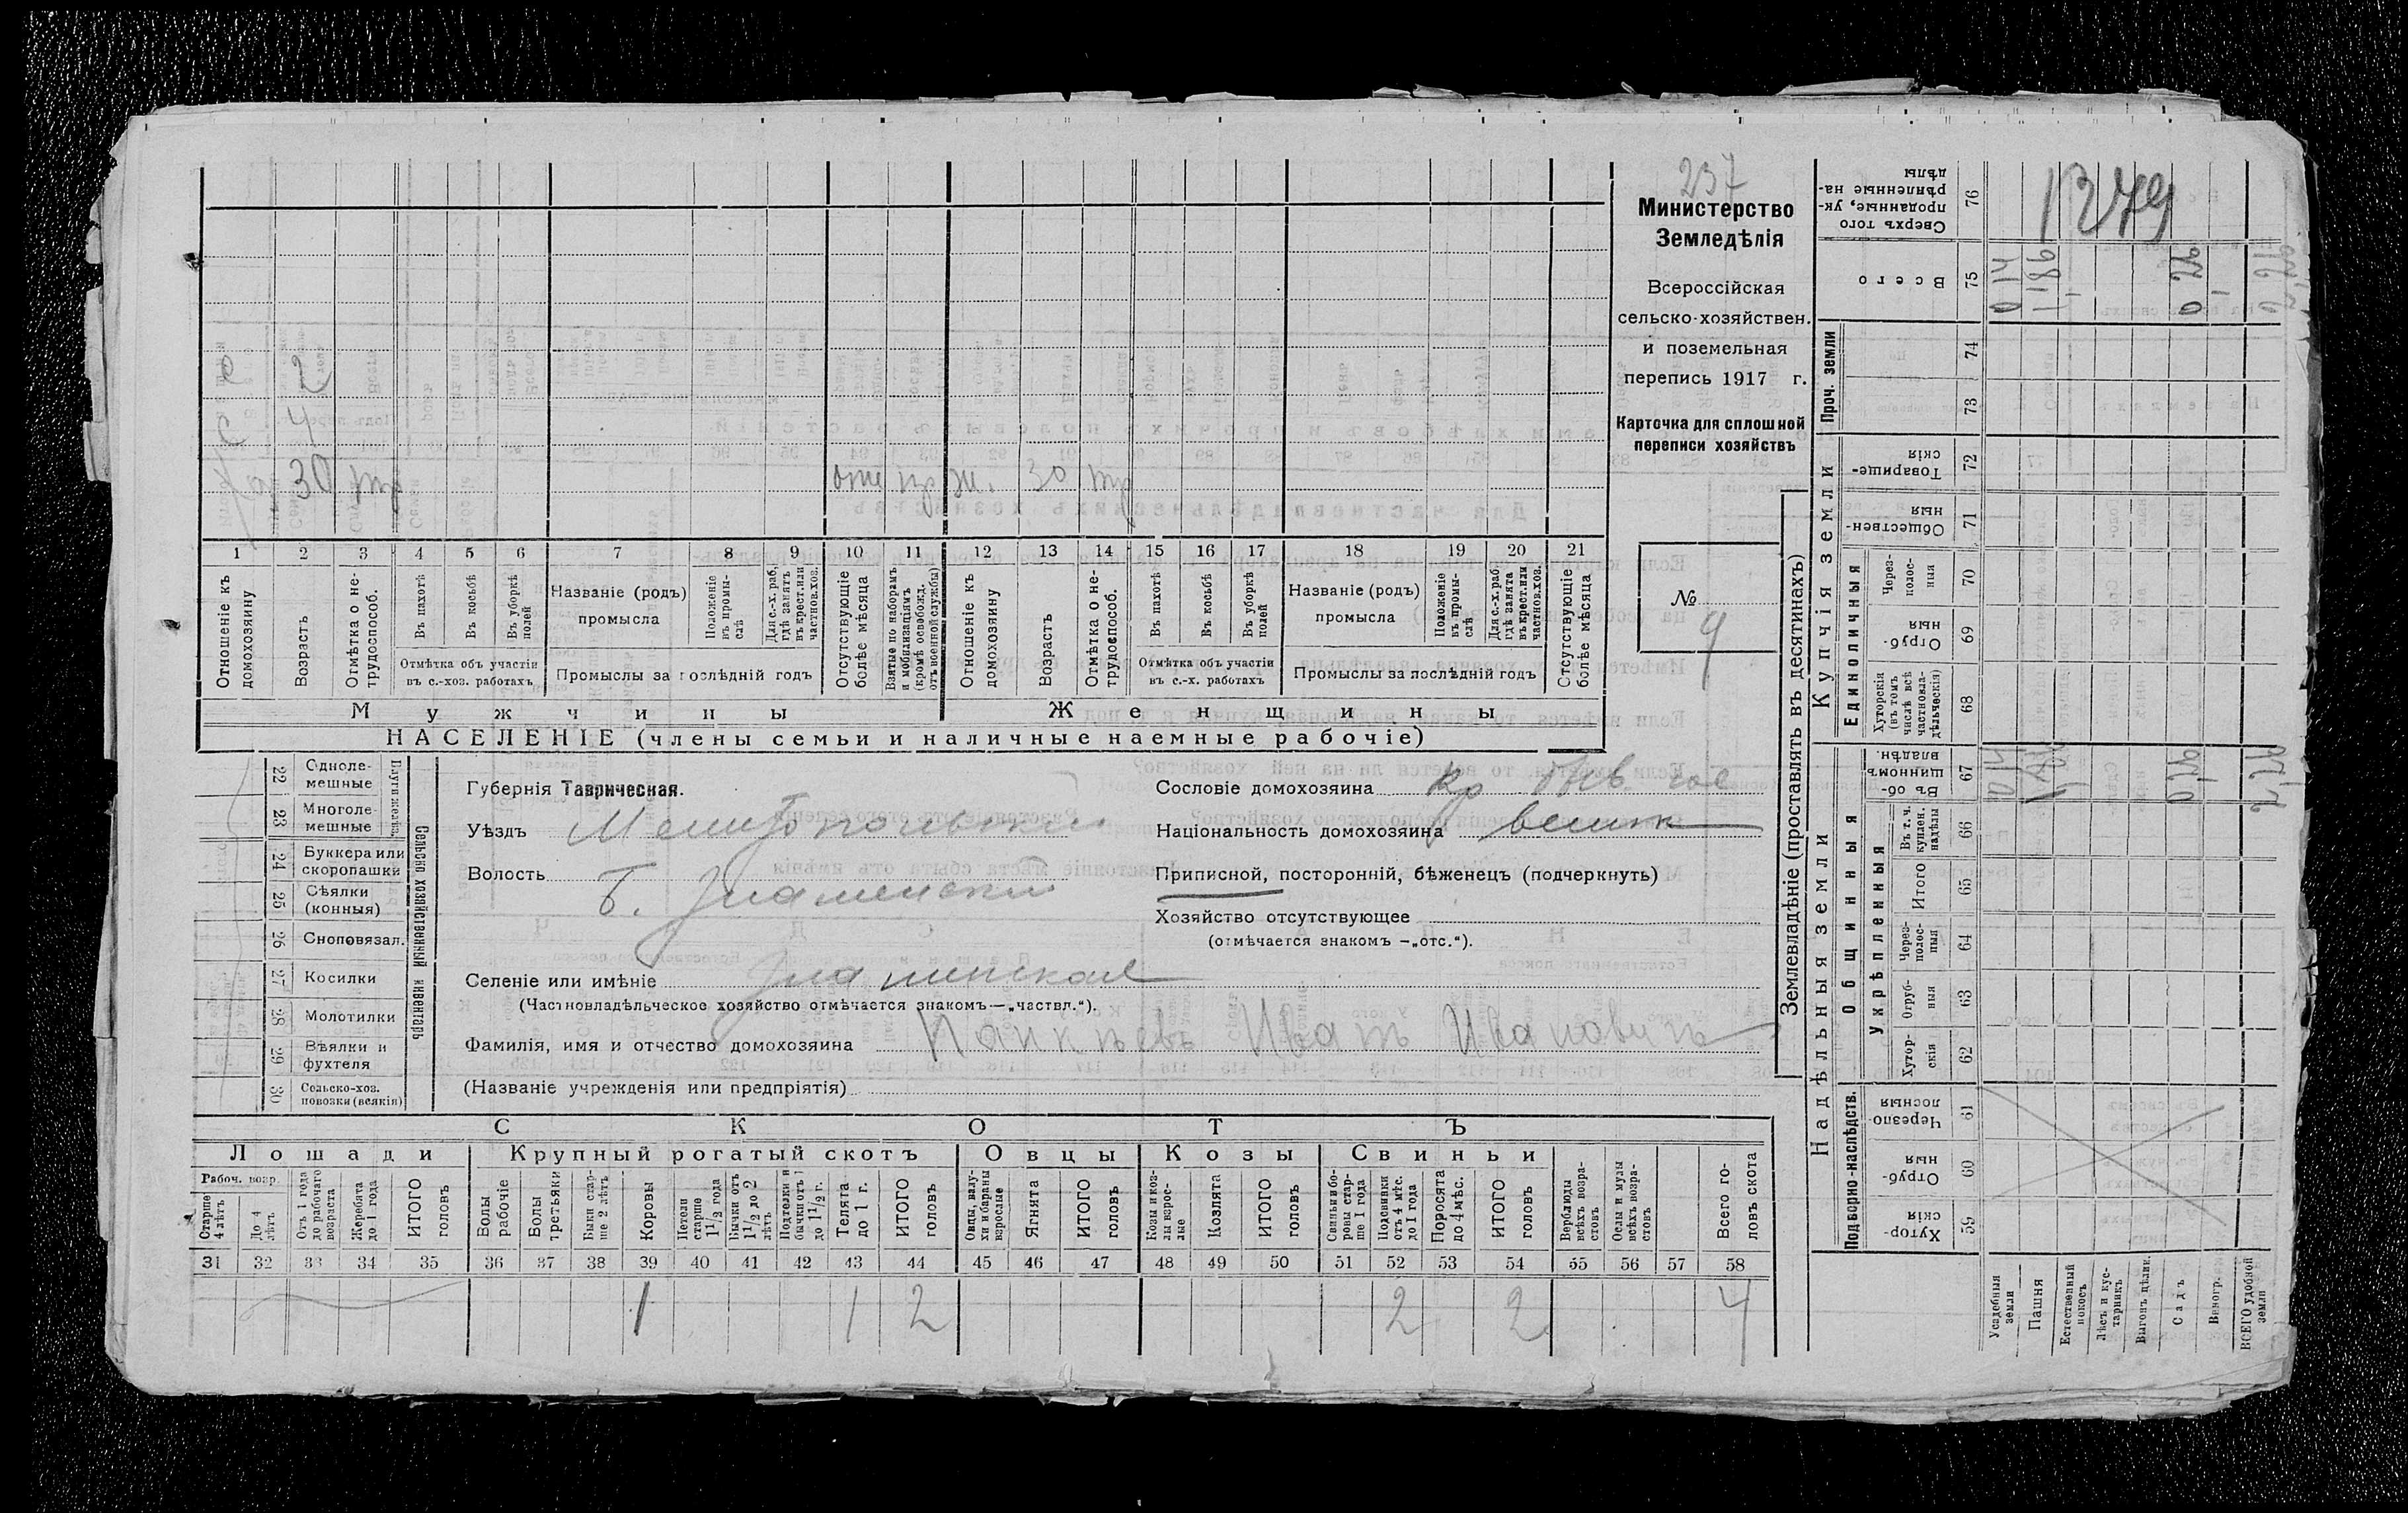 237
Министерство
Земледѣлія
Всероссійская
сельско-хозяйствен.
и поземельная
перепись 1917 г.
Карточка для сплошной
переписи хозяйствъ
№ 9
30
отс
ж. 30
1 2 3 4 5 6 7 8 9 10 11 12 13 14 15 16 17 18 19 20 21
Отношеніе къ домохозяину
Возрастъ
Отмѣтка о не-трудоспособ.
Въ пахотѣ
Въ косьбѣ
Въ уборкѣ полей
Отмѣтка объ участіи въ с.-хоз. работахъ
Названіе (родъ) промысла
Положеніе въ промы-слѣ
Для с.-х. раб., гдѣ занятъ въ крест. или частнов. хоз.
Промыслы за послѣдній годъ
Отсутствующіе болѣе мѣсяца
Взятые по наборамъ и мобилизаціямъ (кромѣ освобожд. отъ военной службы)
Отношеніе къ домохозяину
Возрастъ
Отмѣтка о не-трудоспособ.
Въ пахотѣ
Въ косьбѣ
Въ уборкѣ полей
Отмѣтка объ участіи въ с.-х. работахъ
Названіе (родъ) промысла
Положеніе въ промы-слѣ
Для с.-х. раб., гдѣ занята въ крест. или частнов. хоз.
Промыслы за послѣдній годъ
Отсутствующіе болѣе мѣсяца
Мужчины
Женщины
НАСЕЛЕНІЕ (члены семьи и наличные наемные рабочіе)
Сельско хозяйственный инвентарь
Плуги желѣзн.
22 Одноле-мешные
23 Многоле-мешные
24 Буккера или скоропашки
25 Сѣялки (конныя)
26 Сноповязал.
27 Косилки
28 Молотилки
29 Вѣялки и фухтеля
30 Сельско-хоз. повозки (всякія)
Губернія Таврическая.
Уѣздъ Мелитопольскій
Волость Б. Знаменская
Селеніе или имѣніе Знаменское
(Частновладѣльческое хозяйство отмѣчается знакомъ—„частвл.“).
Фамилія, имя и отчество домохозяина Иванъ Ивановичъ
(Названіе учрежденія или предпріятія)
Сословіе домохозяина кр
Національность домохозяина велик
Приписной, посторонній, бѣженецъ (подчеркнуть)
Хозяйство отсутствующее
(отмѣчается знакомъ —„отс.“).
СКОТЪ
Лошади
Крупный рогатый скотъ
Овцы
Козы
Свиньи
Рабоч. возр.
Старше 4 лѣтъ
До 4 лѣтъ
Отъ 1 года до рабочаго возраста
Жеребята до 1 года
ИТОГО головъ
Волы рабочіе
Волы третьяки
Быки стар-ше 2 лѣтъ
Коровы
Нетели старше 1 1/2 года
Бычки отъ 1 1/2 до 2 лѣтъ
Подтелки и бычки отъ 1 до 1 1/2 г.
Телята до 1 г.
ИТОГО головъ
Овцы, валу-хи и бараны взрослые
Ягнята
ИТОГО головъ
Козы и коз-лы взрос-лые
Козлята
ИТОГО головъ
Свиньи и бо-ровы стар-ше 1 года
Подсвинки отъ 4 мѣс. до 1 года
Поросята до 4 мѣс.
ИТОГО головъ
Верблюды всѣхъ возра-стовъ
Ослы и мулы всѣхъ возра-стовъ
Всего го-ловъ скота
31 32 33 34 35 36 37 38 39 40 41 42 43 44 45 46 47 48 49 50 51 52 53 54 55 56 57 58
1 1 2 2 2 4
Землевладѣніе (проставлять въ десятинахъ)
Надѣльныя земли
Купчія земли
Проч. земли
Подворно-наслѣдств.
Общинныя
Укрѣпленныя
Единоличныя
Сверхъ того проданные, ук-рѣпленные на-дѣлы 76
Всего 75
74
73
Товарище-скія 72
Обществен-ныя 71
Через-полос-ныя 70
Отруб-ныя 69
Хуторскія (въ томъ числѣ всѣ частновла-дѣльческія) 68
Въ об-щинномъ владѣн. 67
Въ т. ч. куплен. надѣлы 66
Итого 65
Через-полос-ныя 64
Отруб-ныя 63
Хутор-скія 62
Черезпо-лосныя 61
Отруб-ныя 60
Хутор-скія 59
1379
0 14
1 86
0 26
Усадебныя земли
Пашня
Естественный покосъ
Лѣсъ и кус-тарникъ
Выгонъ цѣлик.
Садъ
Виногр.
ВСЕГО удобной земли